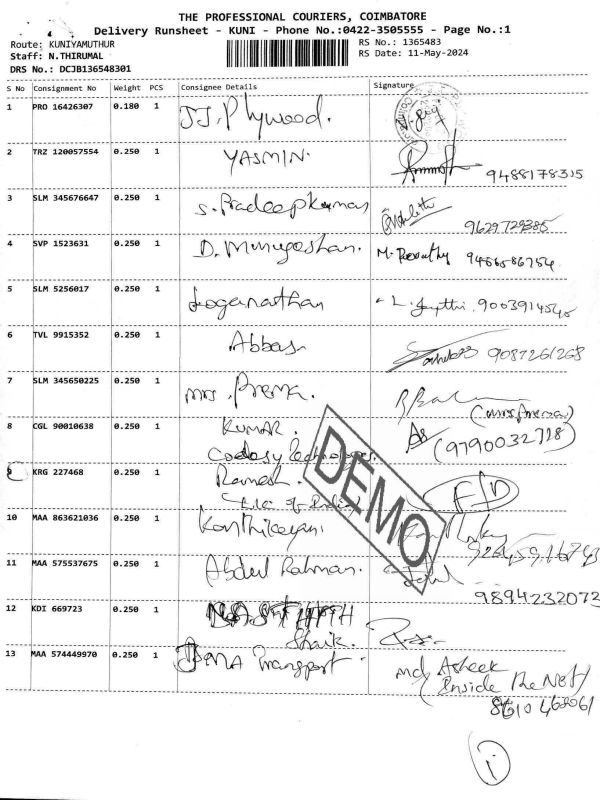 THE PROFESSIONAL COURIERS, COIMBATORE
Delivery Runsheet - KUNI - Phone No.:0422-3505555 - Page No.:1
Route: KUNIYAMUTHUR
RS No.: 1365483
Staff: N.THIRUMAL
RS Date: 11-May-2024
DRS No.: DCJB136548301
S No Consignment No Weight PCS Consignee Details Signature
1 PRO 16426307 0.180 1 JJ. Plywood.
2 TRZ 120057554 0.250 1 YASMIN. 9488178315
3 SLM 345676647 0.250 1 S. Pradeepkumar 9629729385
4 SVP 1523631 0.250 1 D. Murugeshan. M. Revathy 9486586754
5 SLM 5256017 0.250 1 Loganathan L. 9003914545
6 TVL 9915352 0.250 1 Abbas 9087261268
7 SLM 345650225 0.250 1 mrs. Prema.
8 CGL 90010638 0.250 1 KUMAR. (9790032718)
9 KRG 227468 0.250 1 Ramesh. F/D
Lic of India
10 MAA 863621036 0.250 1 Karthikeyani
11 MAA 575537675 0.250 1 Abdul Rahman.
9894232073
12 KDI 669723 0.250 1
Shaik.
13 MAA 574449970 0.250 1 Transport. md Asheek
Inside
DEMO
1